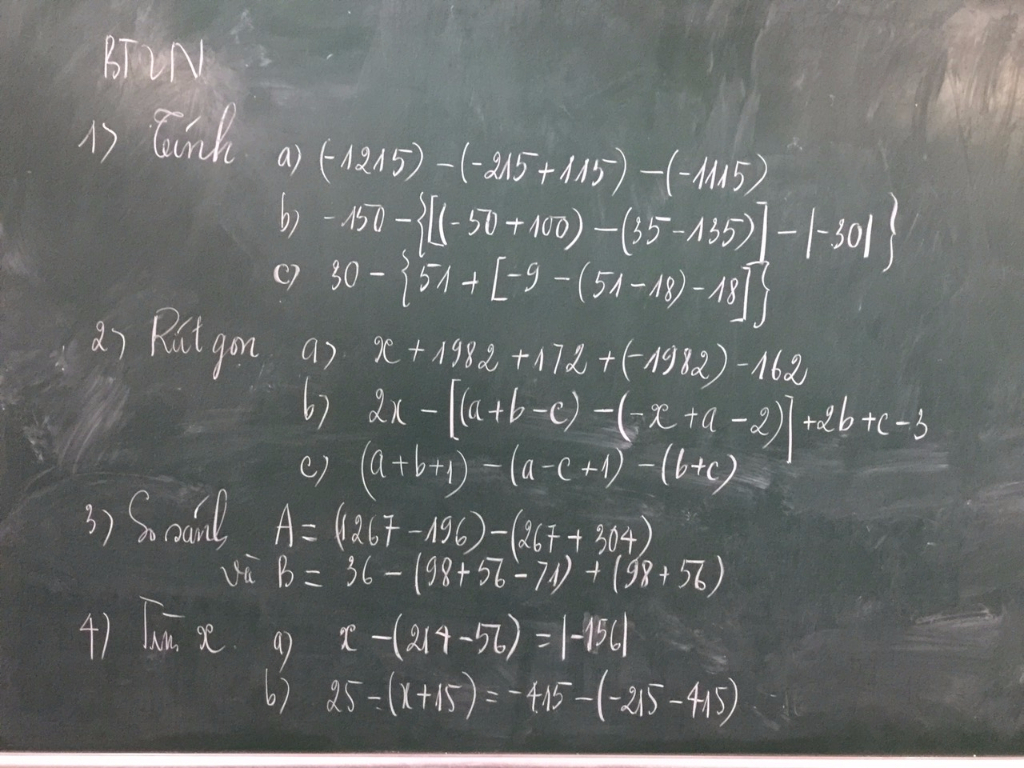 BTVN
1) Tính a) (-1215) - (-215 + 115) - (-1115)
b) -150 - {[(-50 + 100) - (35 - 135)] - |-30|}
c) 30 - {51 + [-9 - (51 - 18) - 18]}
2) Rút gọn a) x + 1982 + 172 + (-1982) - 162
b) 2x - [(a + b - c) - (-x + a - 2)] + 2b + c - 3
c) (a + b + 1) - (a - c + 1) - (b + c)
3) So sánh A = (1267 - 196) - (267 + 304)
và B = 36 - (98 + 56 - 71) + (98 + 56)
4) Tìm x a) x - (214 - 56) = |-156|
b) 25 - (x + 15) = -415 - (-215 - 415)